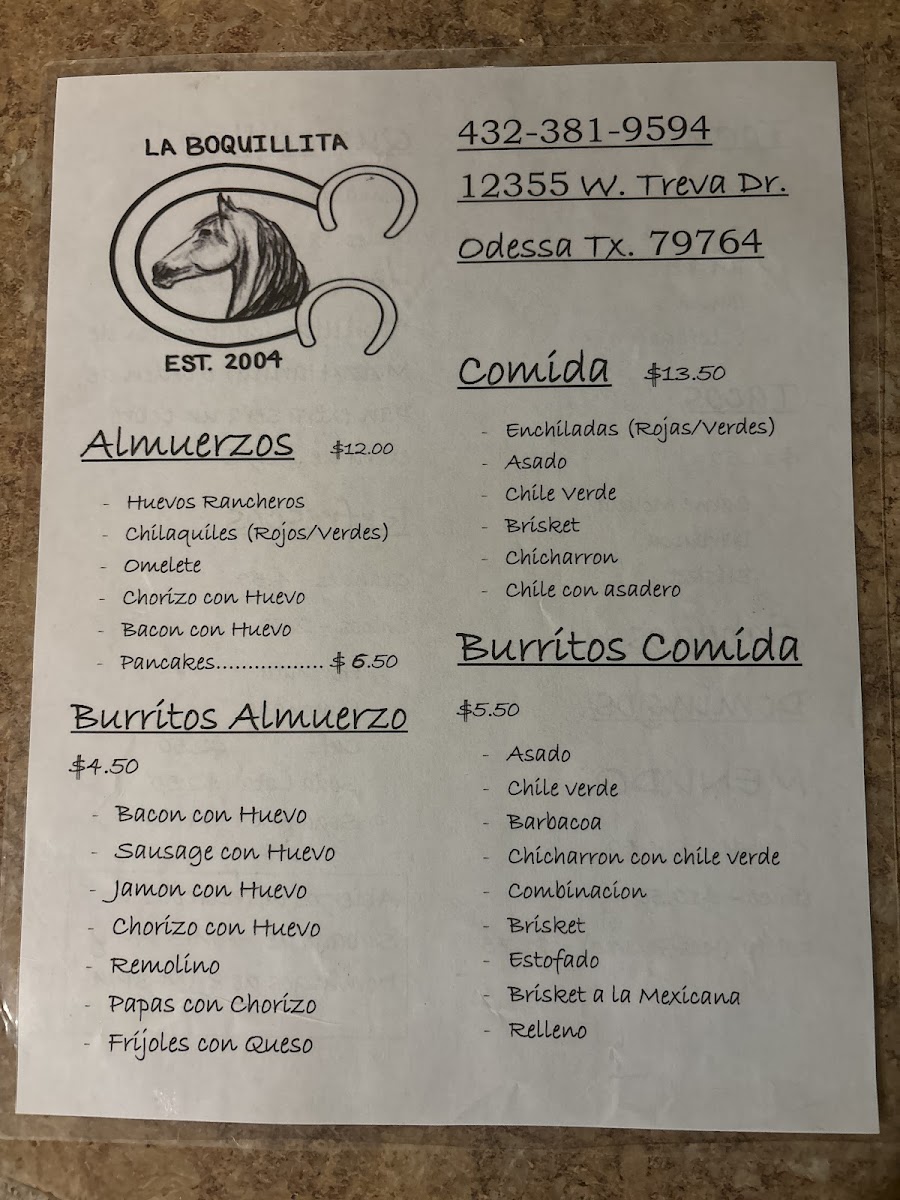 LA BOQUILLITA
EST. 2004
432-381-9594
12355 W. Treva Dr.
Odessa Tx. 79764
Almuerzos $12.00
- Huevos Rancheros
- Chilaquiles (Rojos/Verdes)
- Omelete
- Chorizo con Huevo
- Bacon con Huevo
- Pancakes.................. $ 6.50
Burritos Almuerzo
$4.50
- Bacon con Huevo
- Sausage con Huevo
- Jamon con Huevo
- Chorizo con Huevo
- Remolino
- Papas con Chorizo
- Frijoles con Queso
Comida $13.50
- Enchiladas (Rojas/Verdes)
- Asado
- Chile Verde
- Brisket
- Chicharron
- Chile con asadero
Burritos Comida
$5.50
- Asado
- Chile verde
- Barbacoa
- Chicharron con chile verde
- Combinacion
- Brisket
- Estofado
- Brisket a la Mexicana
- Relleno